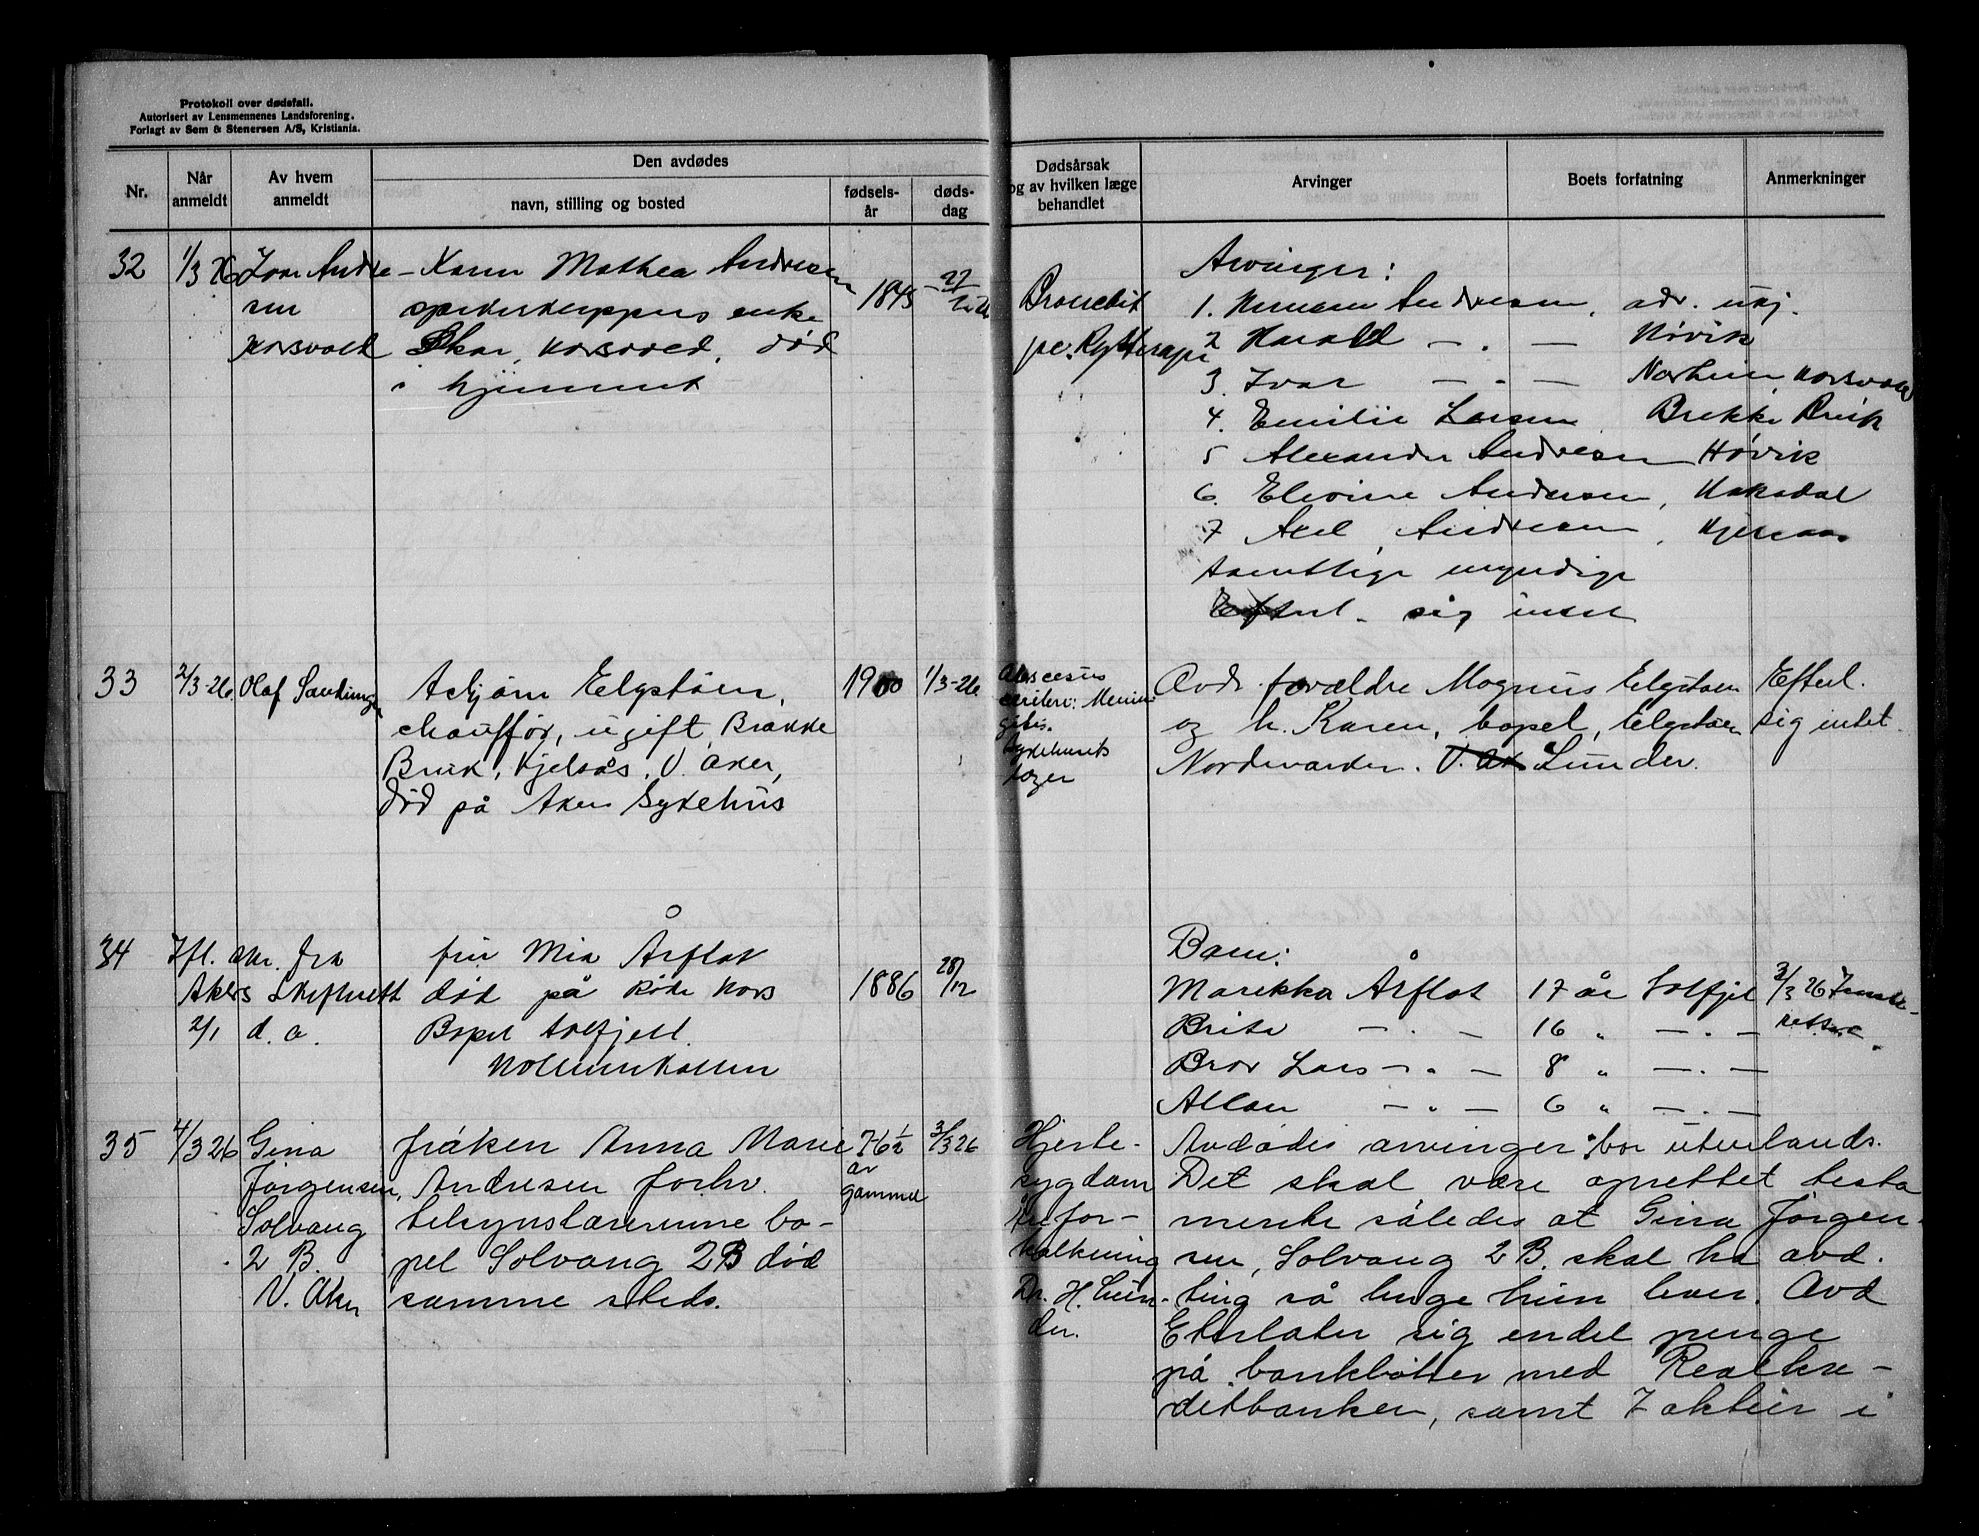 Protokoll over dødsfall.
Autorisert av Lensmennenes Landsforening.
Forlagt av Sem & Stenersen A/S, Kristiania.
Nr.
Når anmeldt
Av hvem anmeldt
Den avdødes
navn, stilling og bosted
fødsels-år
døds-dag
Dødsårsak og av hvilken læge behandlet
Arvinger
Boets forfatning
Anmerkninger
32
1/3 26
Ivar Andre-
sen
Korsvold
Karen Mathea Andresen
enke
Skar, Korsvold, død
i hjemmet
1845
27/2 26
Arvinger:
1. Herman Andresen, adr. ukj.
2 Harald — . — Høvik
3. Ivar — . — Korsvold
4. Emilie Larsen, Brekke Bruk
5 Alexander Andresen Høvik
6. Elvine Andersen, Hakadal
7 Axel Andresen, Kjelsaas
samtlige myndige
Efterl. sig intet
33
2/3-26.
Olaf
Asbjørn Elgstøen,
chauffør, ugift, Brække
Bruk, Kjelsås, V. Aker,
død på Aker Sykehus
1900
1/3-26
Abscesus
cerebri: Menin
gitis.
Sykehusets
læger
Avds forældre Magnus Elgstøen
og h. Karen, bopel, Elgstøen
Lunder.
Efterl.
sig intet.
34
Ifl. skr. fra
Akers Skifterett
2/1 d. a.
fru Mia Årflot
død på Røde Kors
Bopel Solfjell
Holmenkollen
1886
28/12
Barn:
Marikka Årflot 17 år Solfjel
Brite — . — 16 " — . —
Bror Lars — . — 8 " — . —
Allan — " — 6 " — . —
3/3 26
35
4/3 26
Gina
Jørgensen,
Solvang
2 B.
V. Aker
frøken Anna Marie
Andresen forhv.
telegn­slærerinne bo-
pel Solvang 2B død
samme steds.
76½
år
gammel
3/3 26
Hjerte-
sygdom
Årefor-
kalkning
Dr. H. Lun-
der.
Avdødes arvinger bor utenlands.
Det skal være oprettet testa
mente således at Gina Jørgen-
sen, Solvang 2 B. skal ha avd.
ting så lenge hun lever. Avd
Etterlater sig endel penge
på bankbøker med Realkre-
ditbanken, samt 7 aktier i